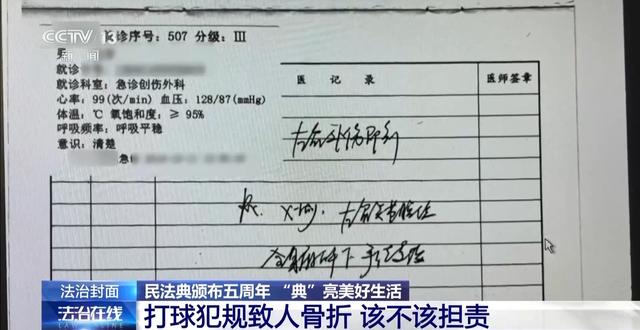 CCTV 13
新闻
诊序号: 507 分级: III
就诊
就诊科室: 急诊创伤外科
心率: 99(次/min) 血压: 128/87(mmHg)
体温: ℃ 氧饱和度: ≥ 95%
呼吸频率: 呼吸平稳
意识: 清楚
急
医 记 录
医师签章
X-ray.
法治封面
民法典颁布五周年 “典”亮美好生活
法治在线
打球犯规致人骨折 该不该担责